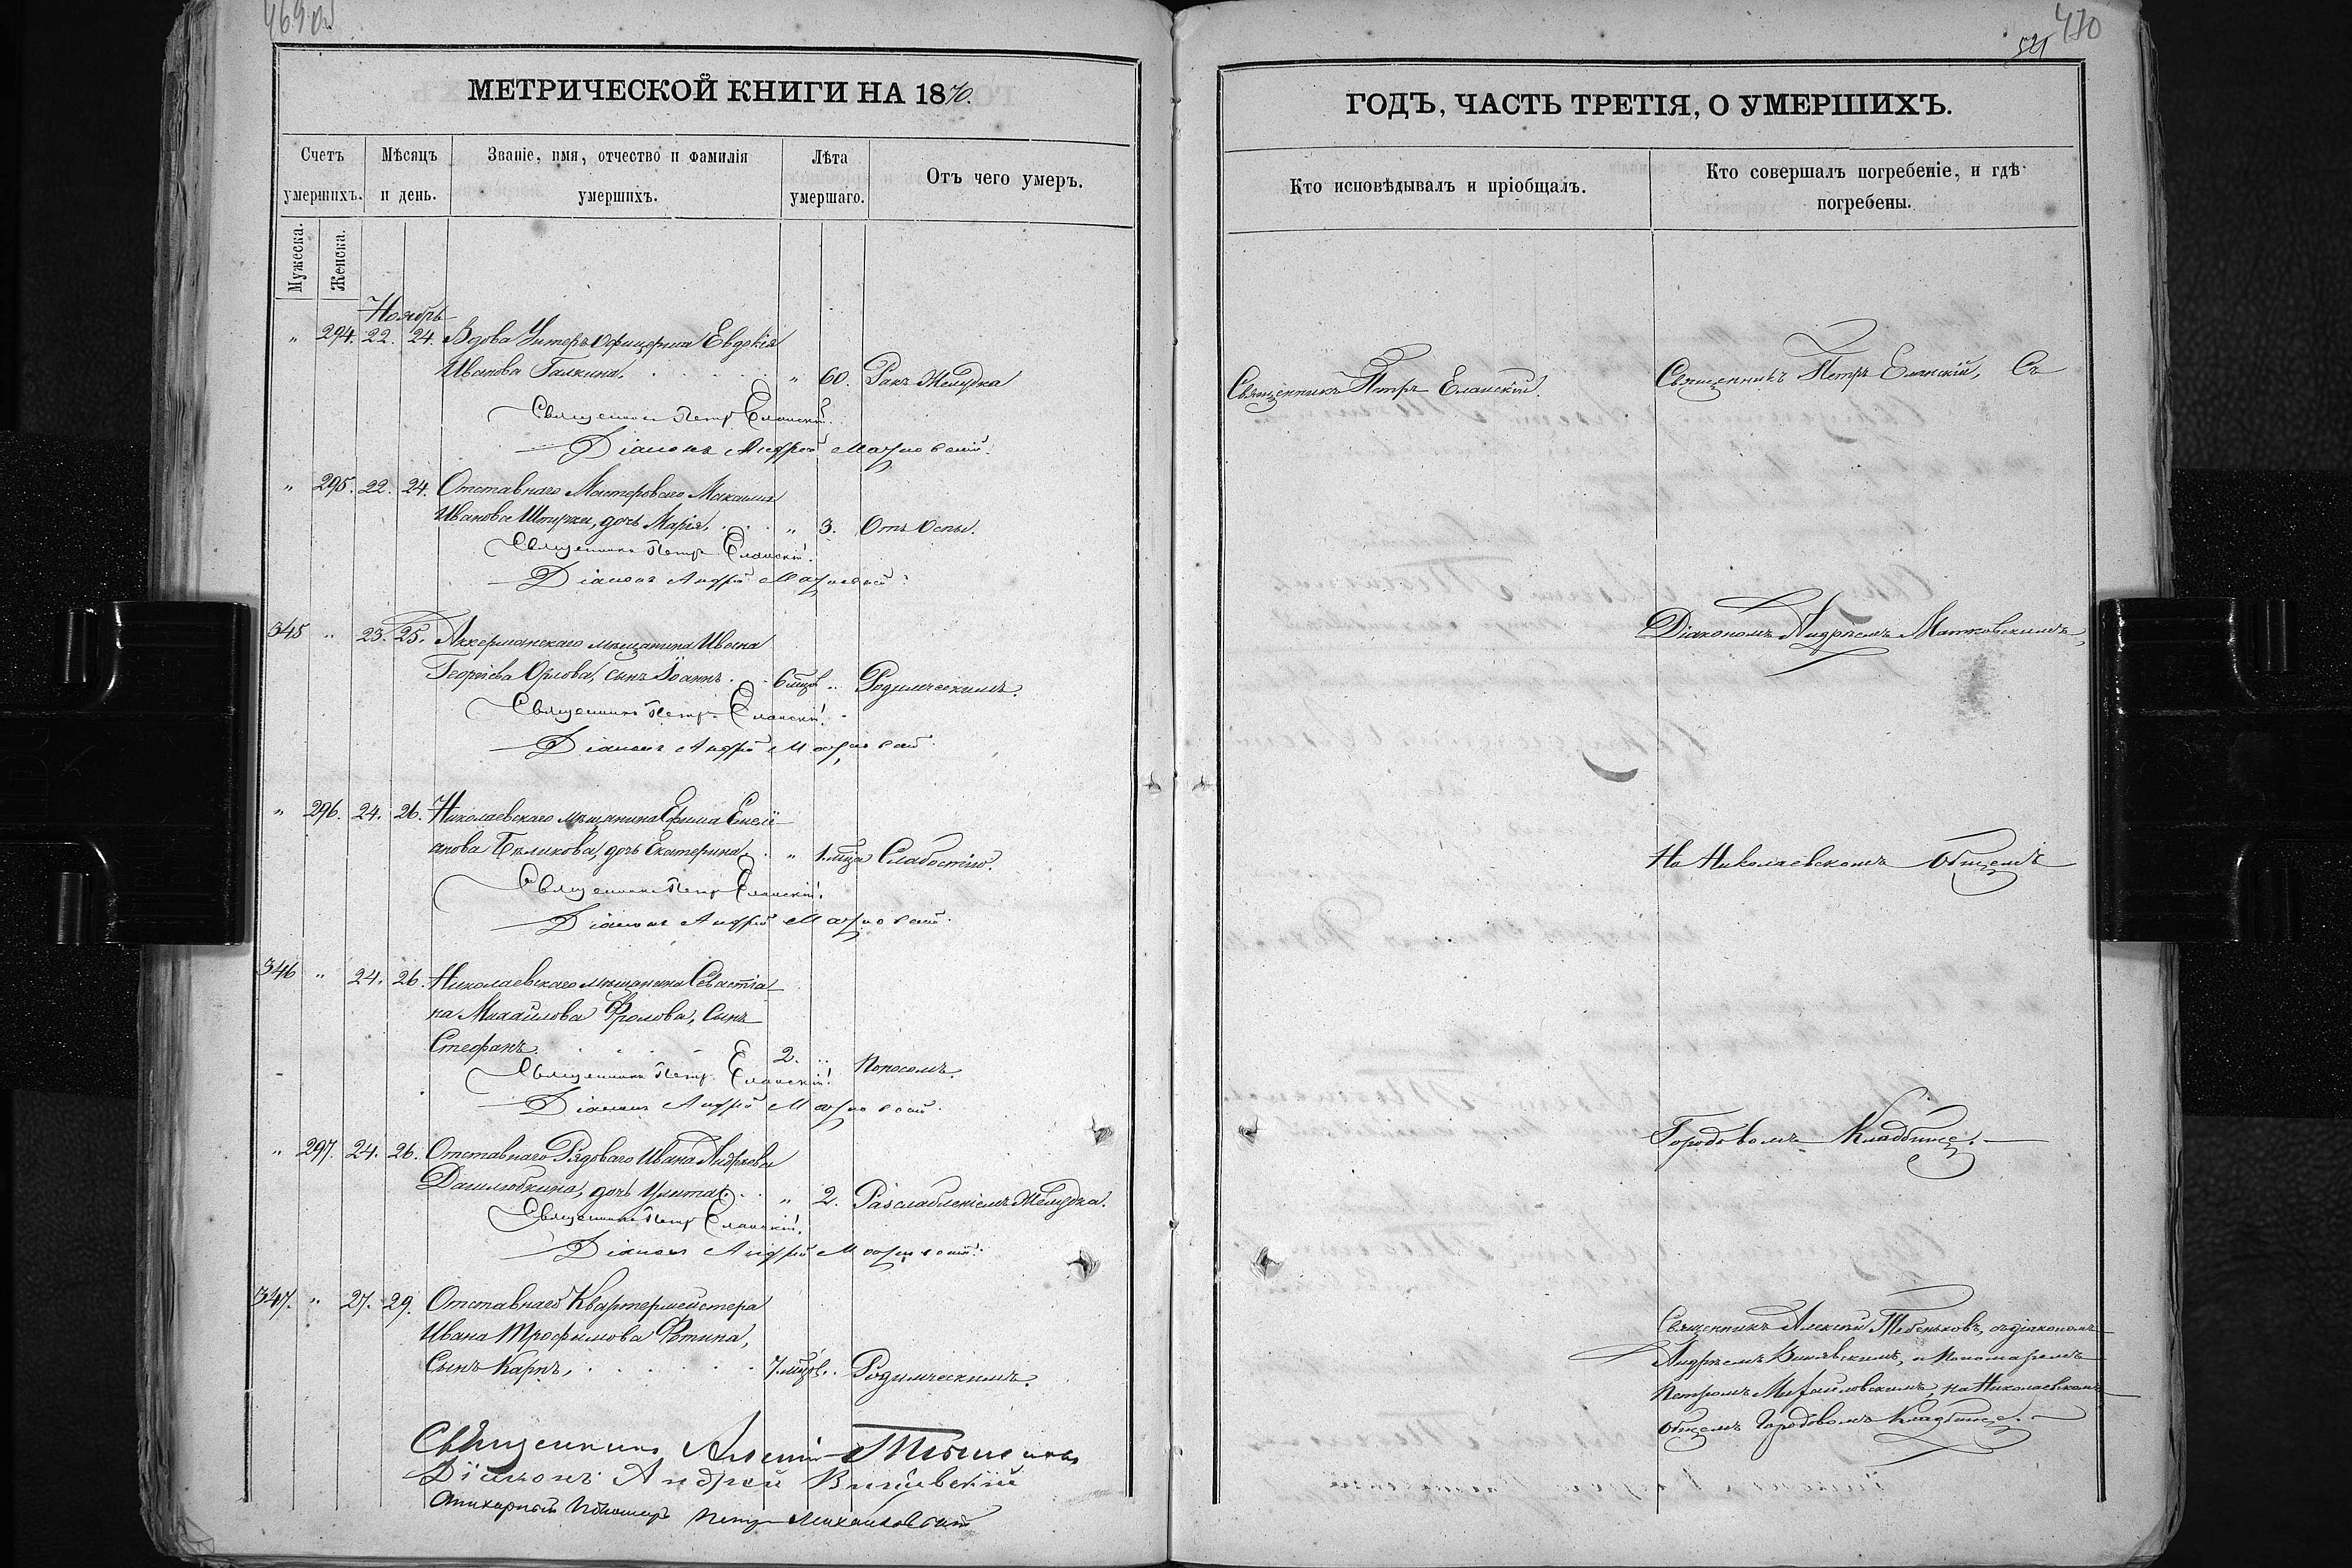 469 об
МЕТРИЧЕСКОЙ КНИГИ НА 1870.
Счетъ умершихъ.
Мѣсяцъ и день.
Званіе, имя, отчество и фамилія умершихъ.
Лѣта умершаго.
Отъ чего умеръ.
Мужеска.
Женска.
Ноябрь
" 294. 22. 24. Вдова Унтеръ Офицерша Евдокія
Иванова Галкина. " 60. Ракъ Желудка
Священникъ Петръ Еланскій.
Діаконъ Андрей Матковскій.
" 295. 22. 24. Отставнаго Мастероваго Максима
Иванова, дочь Марія. " 3. Отъ Оспы.
Священникъ Петръ Еланскій.
Діаконъ Андрей Матковскій.
345 " 23. 25. Аккерманскаго мѣщанина Ивана
Георгіева Орлова, сынъ Іоаннъ. 6 мцов " Родимческимъ.
Священникъ Петръ Еланскій.
Діаконъ Андрей Матковскій.
" 296. 24. 26. Николаевскаго мѣщанина Ефима Емелі-
анова Бѣликова, дочь Екатерина. " 1 мца Слабостію.
Священникъ Петръ Еланскій.
Діаконъ Андрей Матковскій.
346 " 24. 26. Николаевскаго мѣщанина Севастіа-
на Михайлова Фролова, Сынъ
Стефанъ. 2. " Поносомъ.
Священникъ Петръ Еланскій.
Діаконъ Андрей Матковскій.
" 297. 24. 26. Отставнаго Рядоваго Ивана Андреева
дочь Улита. " 2. Разслабленіемъ Желудка.
Священникъ Петръ Еланскій.
Діаконъ Андрей Матковскій.
347. " 27. 29. Отставнаго Квартермейстера
Ивана Трофимова Фотина,
Сынъ Карпъ, 7 мцов. " Родимческимъ.
Священникъ Алексій
Діаконъ Андрей
Пономарь Петръ Михайловскій
470
521
ГОДЪ, ЧАСТЬ ТРЕТІЯ, О УМЕРШИХЪ.
Кто исповѣдывалъ и пріобщалъ.
Кто совершалъ погребеніе, и гдѣ погребены.
Священникъ Петръ Еланскій.
Священникъ Петръ Еланскій, Съ
Діакономъ Андреемъ Матковскимъ,
На Николаевскомъ Общемъ
Городовомъ Кладбище.
Священникъ Алексій Тебеньковъ, съ діакономъ
Андреемъ и Пономаремъ
Петромъ Михайловскимъ, на Николаевскомъ
общемъ Городовомъ Кладбище.